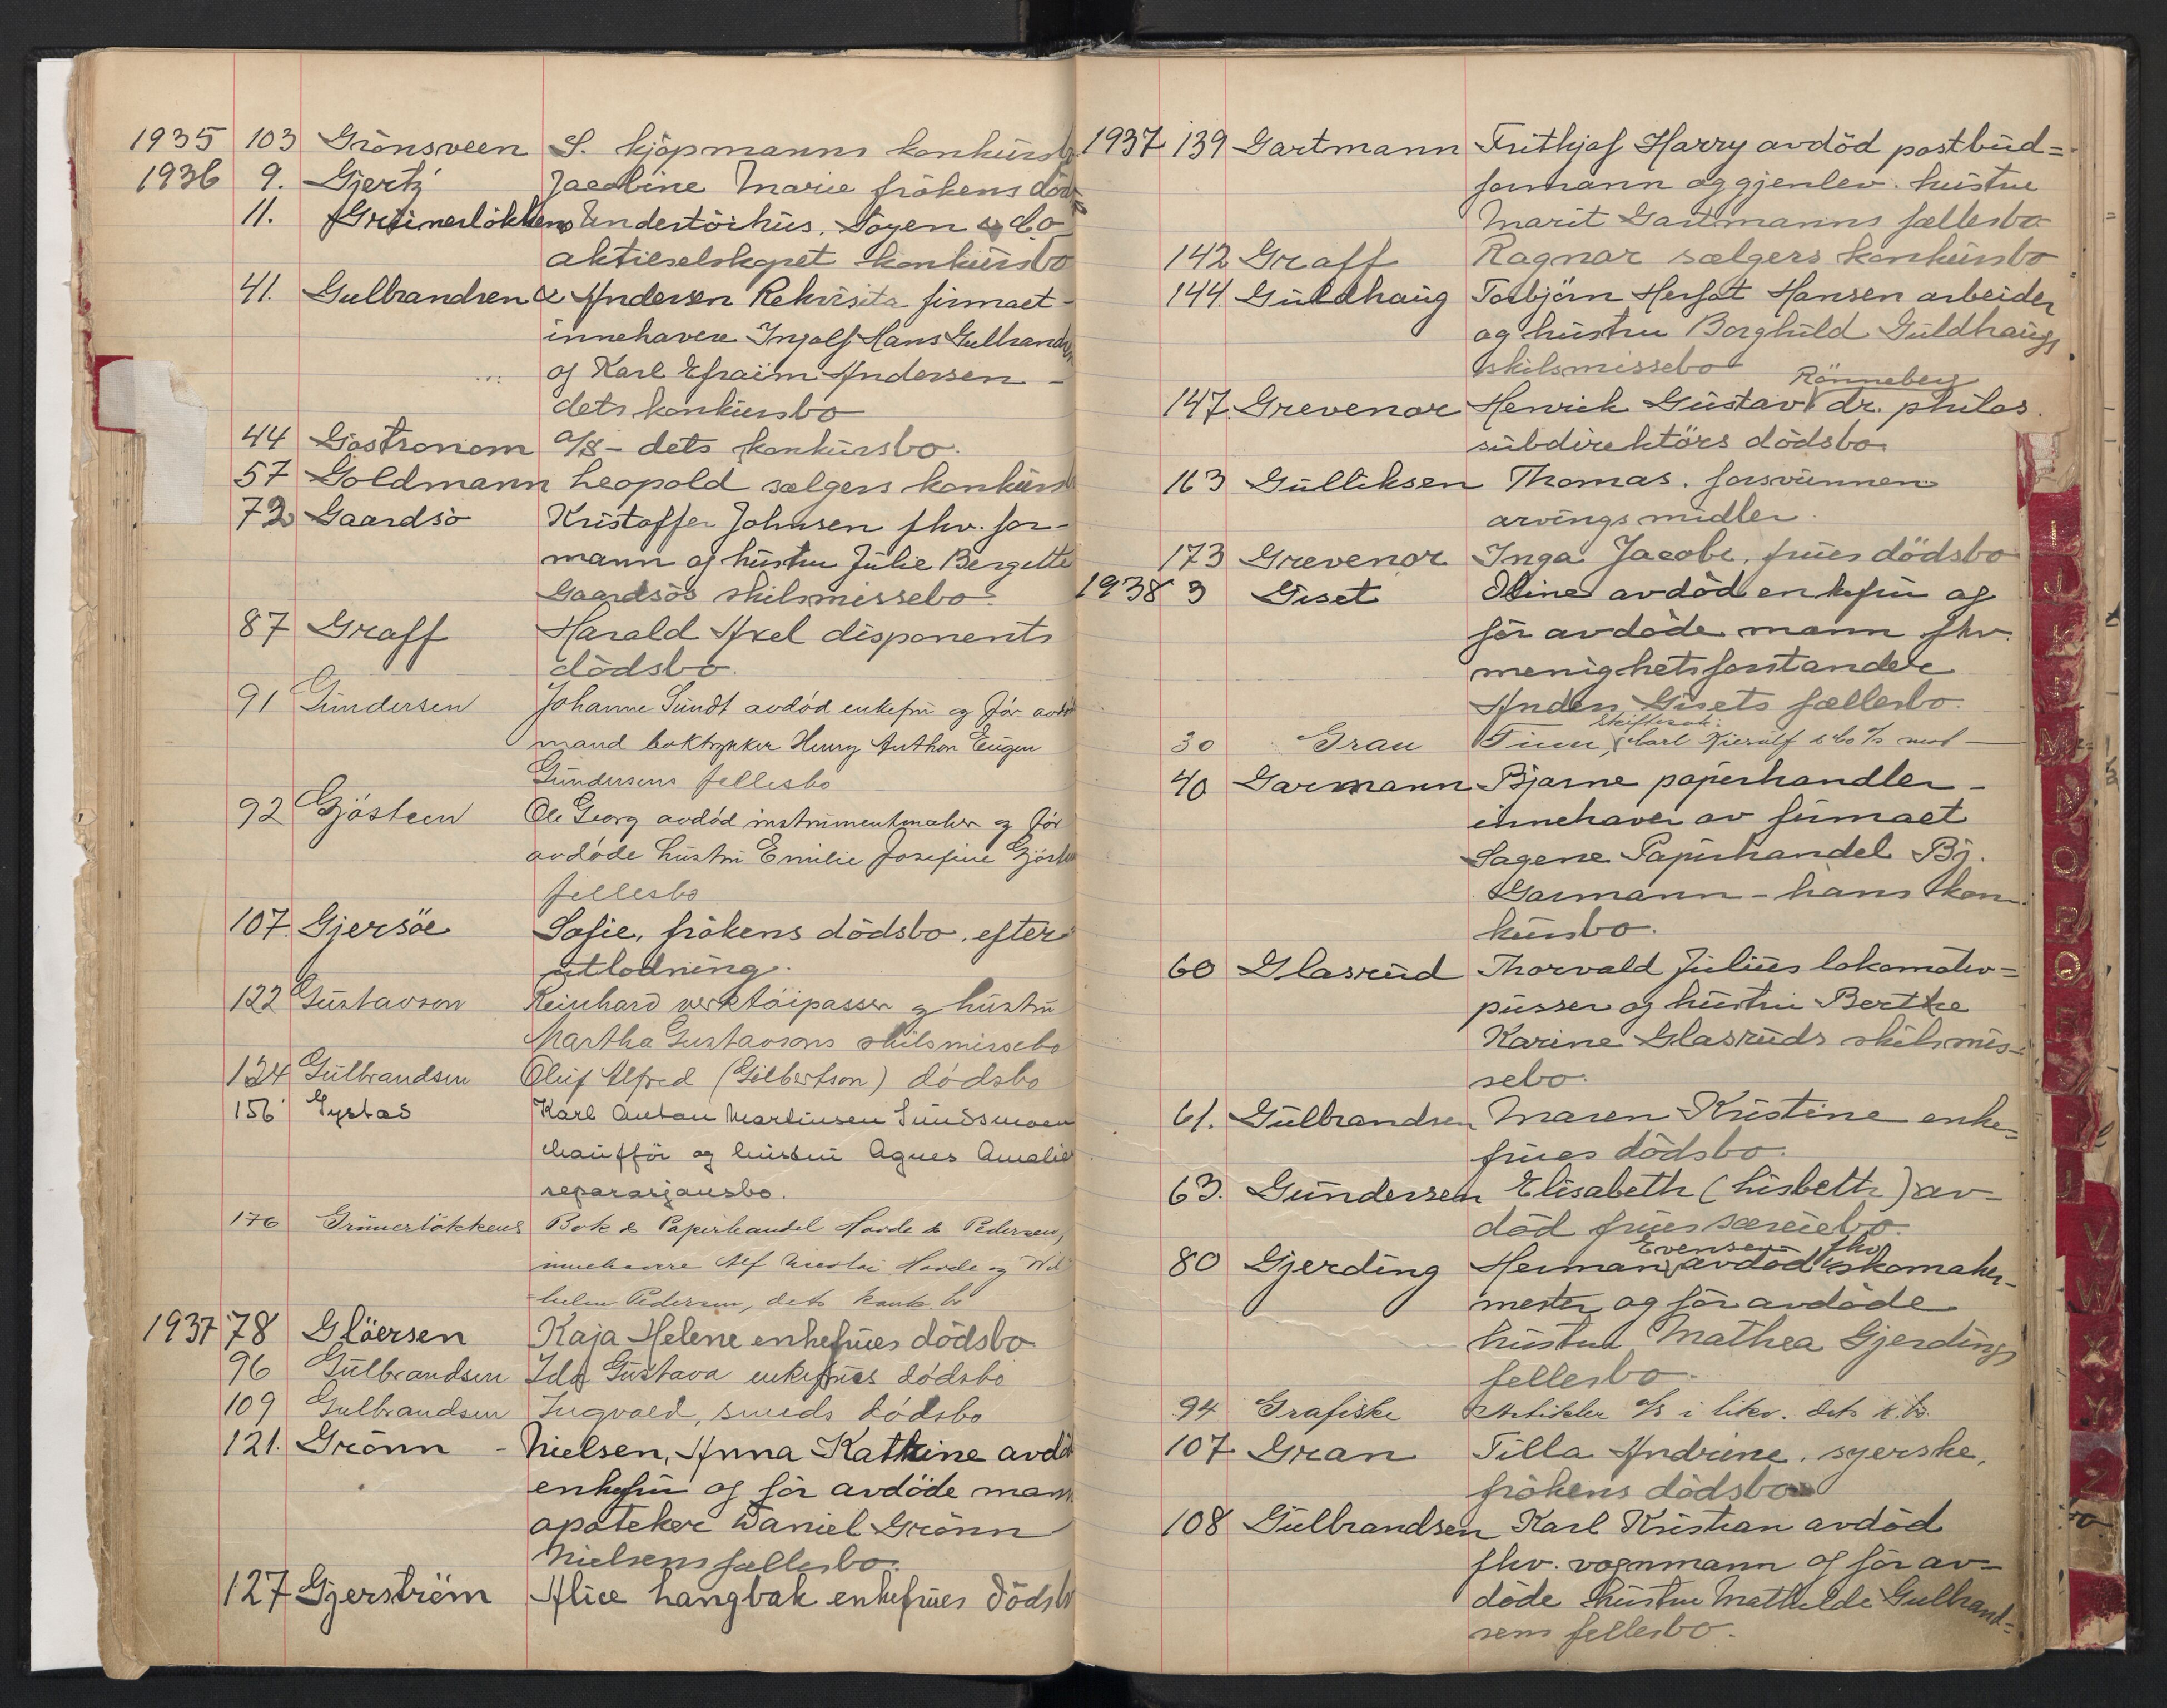 1935 103 Grönsveen S. kjöpmanns konkursb
1936 9. Gjertz Jacobine Marie frökens död
11. Grünerlökkens Undertöihus, Döyen & Co
aktieselskapet konkursbo
41. Gulbrandsen & Andersen Rekvisita firmaet -
innehavere Ingolf Hans Gulbrandsen
og Karl Efraim Andersen -
dets konkursbo
44 Gastronom A/S - dets konkursbo.
57 Goldmann Leopold sælgers konkurs
72 Gaardsö Kristoffer Johnsen fhv. for-
mann og hustru Julie Bergitte
Gaardsös skilsmissebo.
87 Graff Harald Axel disponents
dödsbo.
91 Gundersen Johanne Sundt avdöd enkefru og för avdö
mand boktrykker Henry Anthon Eugen
Gundersens fellesbo
92 Gjösteen Ole Georg avdöd instrumentmaker og för
avdöde hustru Emilie Josefine Gjöste
fellesbo
107 Gjersöe Sofie, frökens dödsbo, efter
utlodning.
122 Gustavson Reinhard verktöipasser og hustru
Martha Gustavsons skilsmissebo
134 Gulbrandsen Oluf Alfred (Gilbertson) dödsbo
156 Gystad Karl Anton Martinsen Sundsmoen
chaufför og hustru Agnes Amalie
reparasjonsbo.
176 Grünerlökkens Bok & Papirhandel Hovde & Pedersen,
innehavere Alf Hovde og Wil
=helm Pedersen, dets konk.bo
1937 78 Glöersen Kaja Helene enkefrues dödsbo
96 Gulbrandsen Ida Gustava enkefrues dödsbo
109 Gulbrandsen Ingvald, smeds dödsbo
121. Grönn - Nielsen, Anna Kathrine avdö
enkefru og för avdöde mann
apoteker Daniel Grönn
Nielsens fællesbo.
127 Gjerström Alice Langbak enkefrues dödsb
1937 139 Gartmann Frithjof Harry avdöd postbud=
formann og gjenlev. hustru
Marit Gartmanns fællesbo
142 Graff Ragnar sælgers konkursbo
144 Guldhaug Torbjörn Hansen arbeider
og hustru Borghild Guldhaugs
skilsmissebo
Rönneberg
147. Grevenor Henrik Gustav dr. philos.
subdirektörs dödsbo
163 Gulliksen Thomas, forsvunnen
arvings midler.
173 Grevenor Inga Jacobe, frues dödsbo
1938 3 Giset Oline avdöd enkefru og
för avdöde mann fhv.
menighetsforstander
Anders Gisets fællesbo.
Skiftesak:
30 Grau Finn, Carl Kierulf & Co A/S mot —
40 Garmann Bjarne papirhandler -
innehaver av firmaet
Sagene Papirhandel Bj.
Garmann - hans kon-
kursbo.
60 Glasrud Thorvald Julius lokomotiv=
pusser og hustru Berthe
Karine Glasruds skilsmis=
sebo.
61. Gulbrandsen Maren Kristine enke=
frues dödsbo.
63. Gundersen Elisabeth (Lisbeth) av-
död frues særeiebo.
Evensen fhv.
80 Gjerding Herman avdöd skomaker-
mester og för avdöde
hustru Mathea Gjerdings
fellesbo.
94 Grafiske Artikler A/S i likv. dets k.bo.
107 Gran Tilla Andrine, syerske,
frökens dödsbo
108 Gulbrandsen Karl Kristian avdöd
fhv. vognmann og för av=
döde hustru Mathilde Gulbrand=
sens fellesbo.
I
J
K
L
M
N
O
P
Q
R
S
U
V
W
X
Y
Z